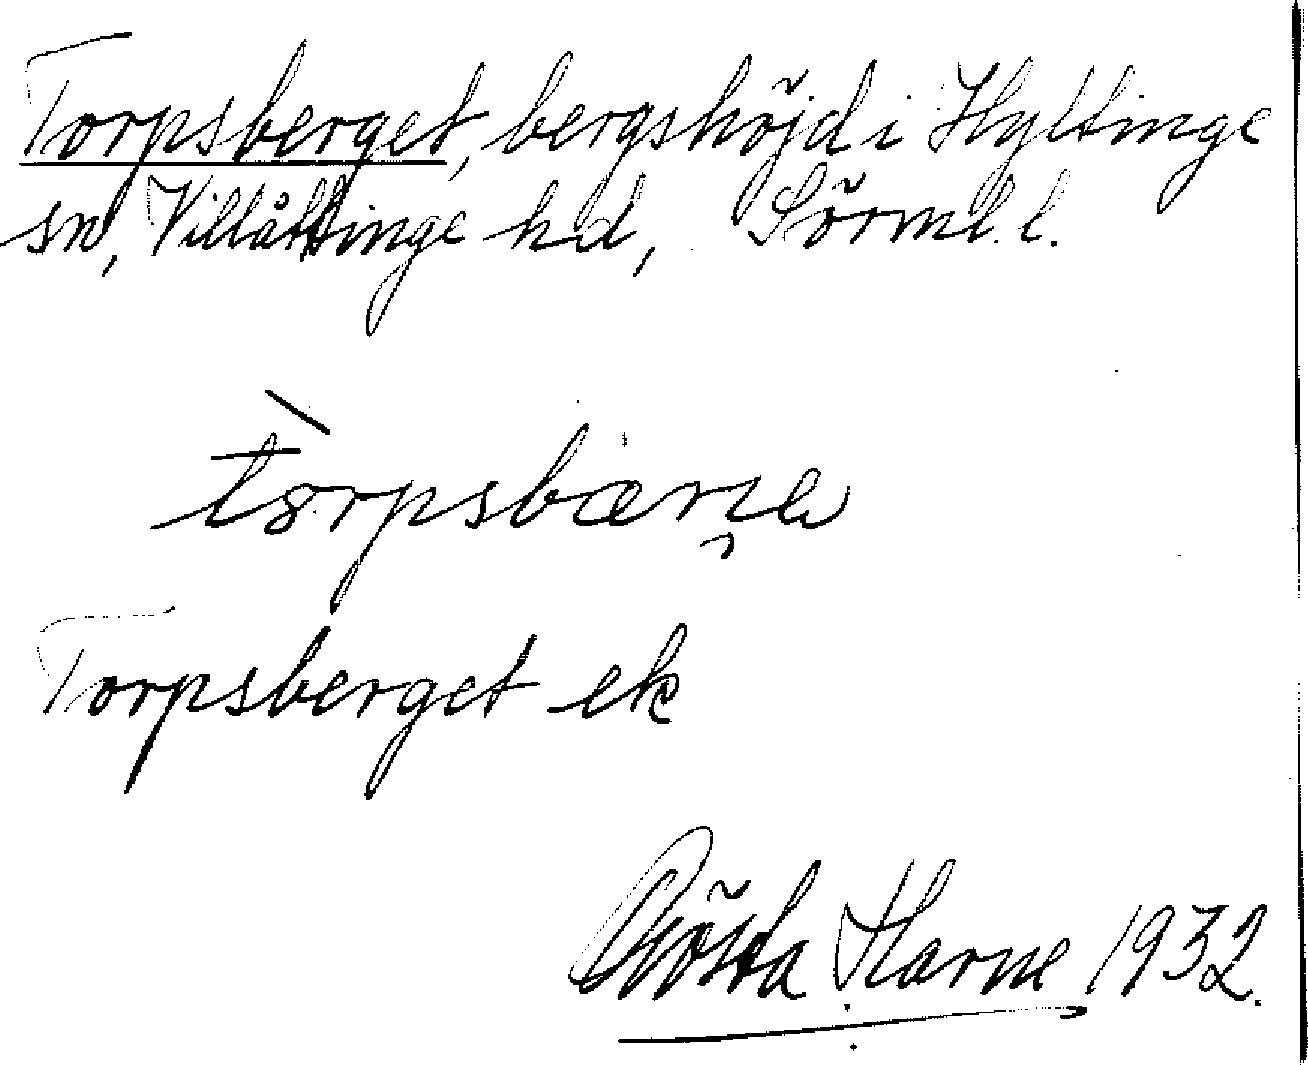 Torpsberget, bergshöjd i Hyltinge
sn, Villåttinge hd, Sörml. l.
Torpsberget ek
Gösta Harne 1932.